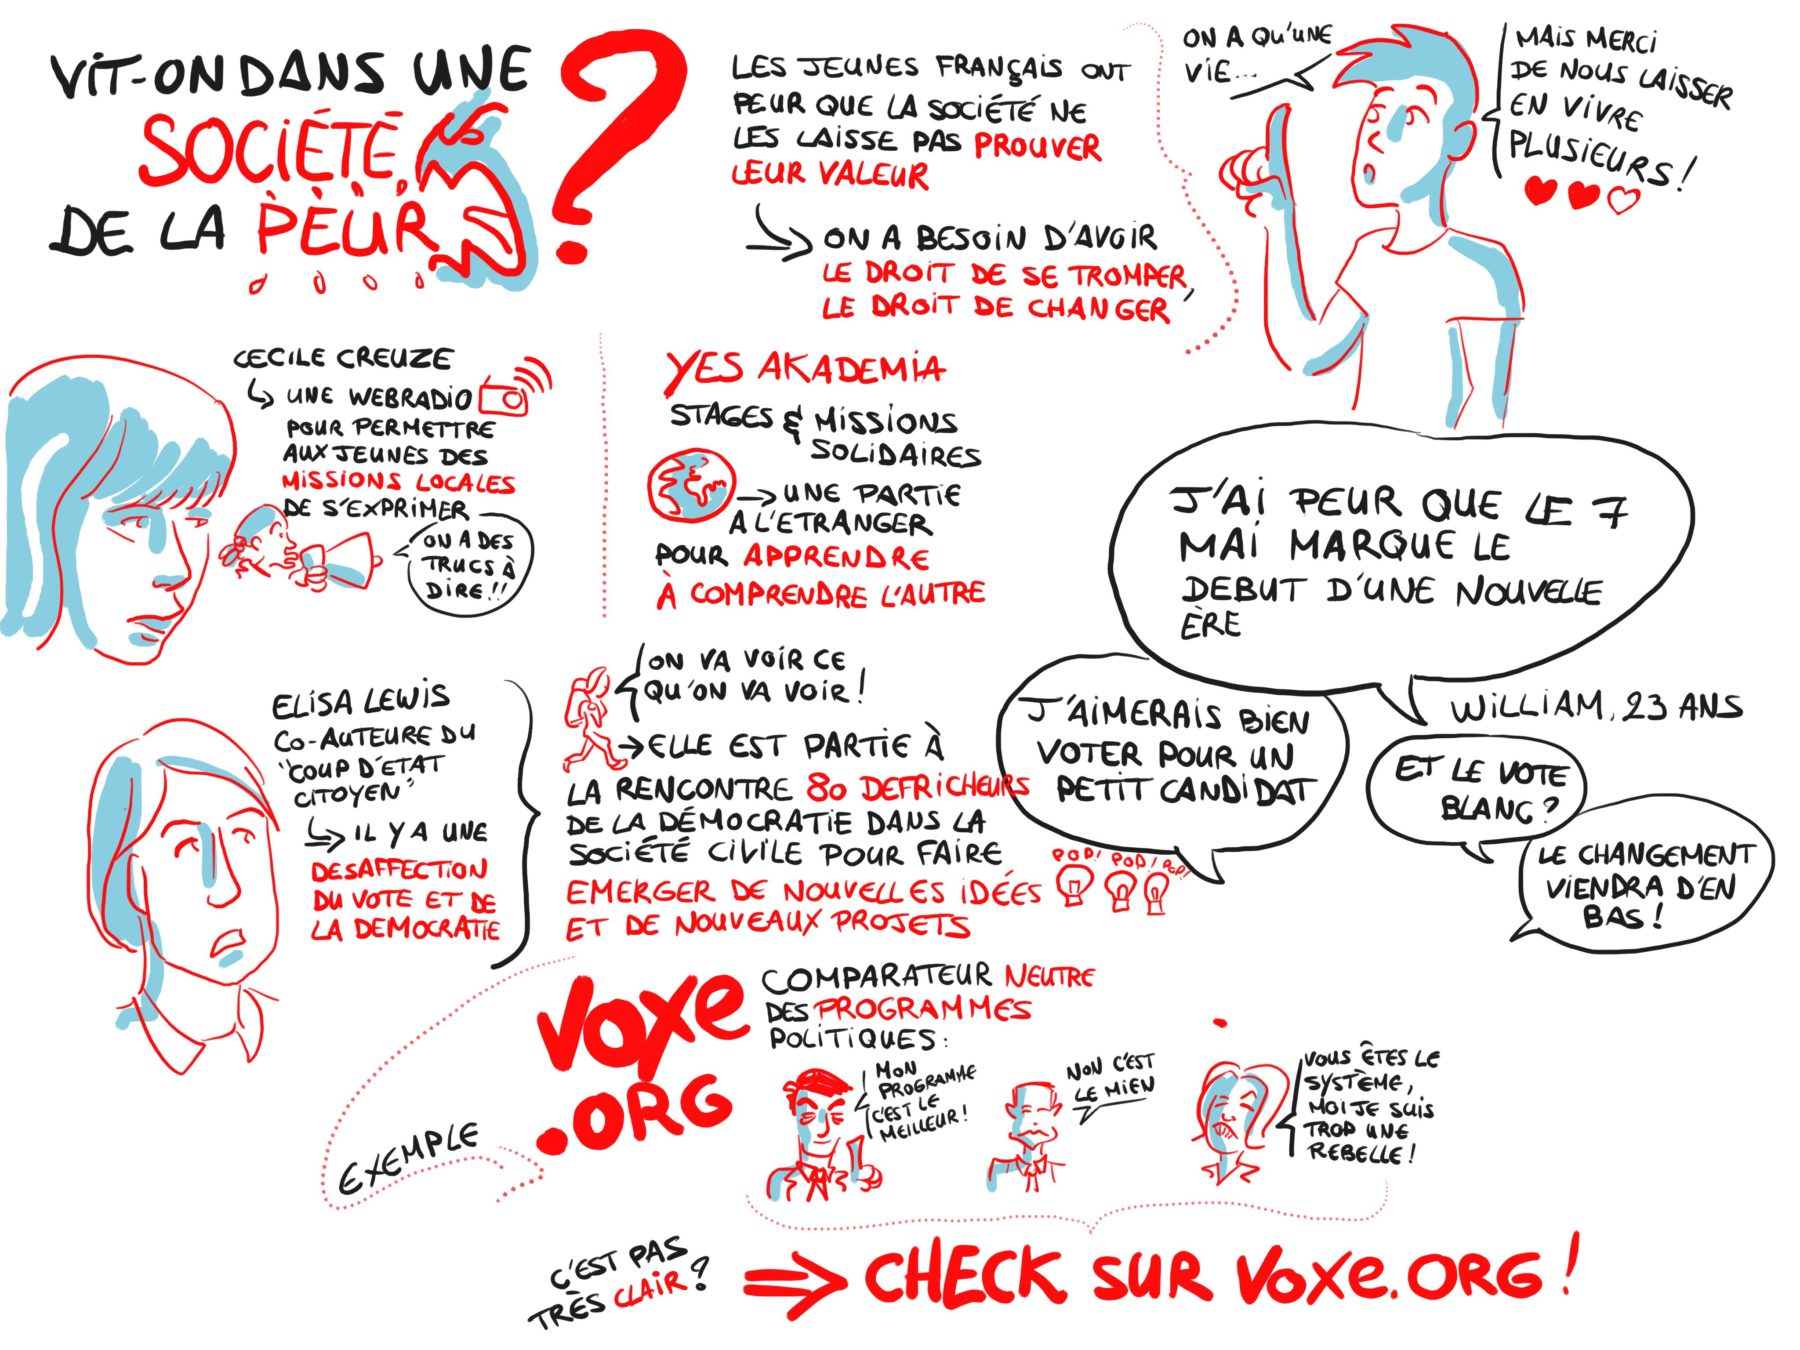 VIT-ON DANS UNE
SOCIÉTÉ
DE LA PEUR
?
LES JEUNES FRANÇAIS ONT
PEUR QUE LA SOCIÉTÉ NE
LES LAISSE PAS PROUVER
LEUR VALEUR
ON A BESOIN D'AVOIR
LE DROIT DE SE TROMPER,
LE DROIT DE CHANGER
ON A QU'UNE
VIE...
MAIS MERCI
DE NOUS LAISSER
EN VIVRE
PLUSIEURS!
CECILE CREUZE
UNE WEBRADIO
POUR PERMETTRE
AUX JEUNES DES
MISSIONS LOCALES
DE S'EXPRIMER
ON A DES
TRUCS À
DIRE!!
YES AKADEMIA
STAGES & MISSIONS
SOLIDAIRES
UNE PARTIE
A L'ETRANGER
POUR APPRENDRE
À COMPRENDRE L'AUTRE
J'AI PEUR QUE LE 7
MAI MARQUE LE
DEBUT D'UNE NOUVELLE
ÈRE
WILLIAM, 23 ANS
J'AIMERAIS BIEN
VOTER POUR UN
PETIT CANDIDAT
ET LE VOTE
BLANC?
LE CHANGEMENT
VIENDRA D'EN
BAS!
ELISA LEWIS
CO-AUTEURE DU
"COUP D'ETAT
CITOYEN"
IL Y A UNE
DESAFFECTION
DU VOTE ET DE
LA DEMOCRATIE
ON VA VOIR CE
QU'ON VA VOIR!
ELLE EST PARTIE À
LA RENCONTRE 80 DEFRICHEURS
DE LA DÉMOCRATIE DANS LA
SOCIÉTÉ CIVILE POUR FAIRE
EMERGER DE NOUVELLES IDÉES
ET DE NOUVEAUX PROJETS
POP! POP! POP!
EXEMPLE
VOXE
.ORG
COMPARATEUR NEUTRE
DES PROGRAMMES
POLITIQUES:
MON
PROGRAMME
C'EST LE
MEILLEUR!
NON C'EST
LE MIEN
VOUS ÊTES LE
SYSTÈME,
MOI JE SUIS
TROP UNE
REBELLE!
C'EST PAS
TRÈS CLAIR?
CHECK SUR VOXE.ORG!